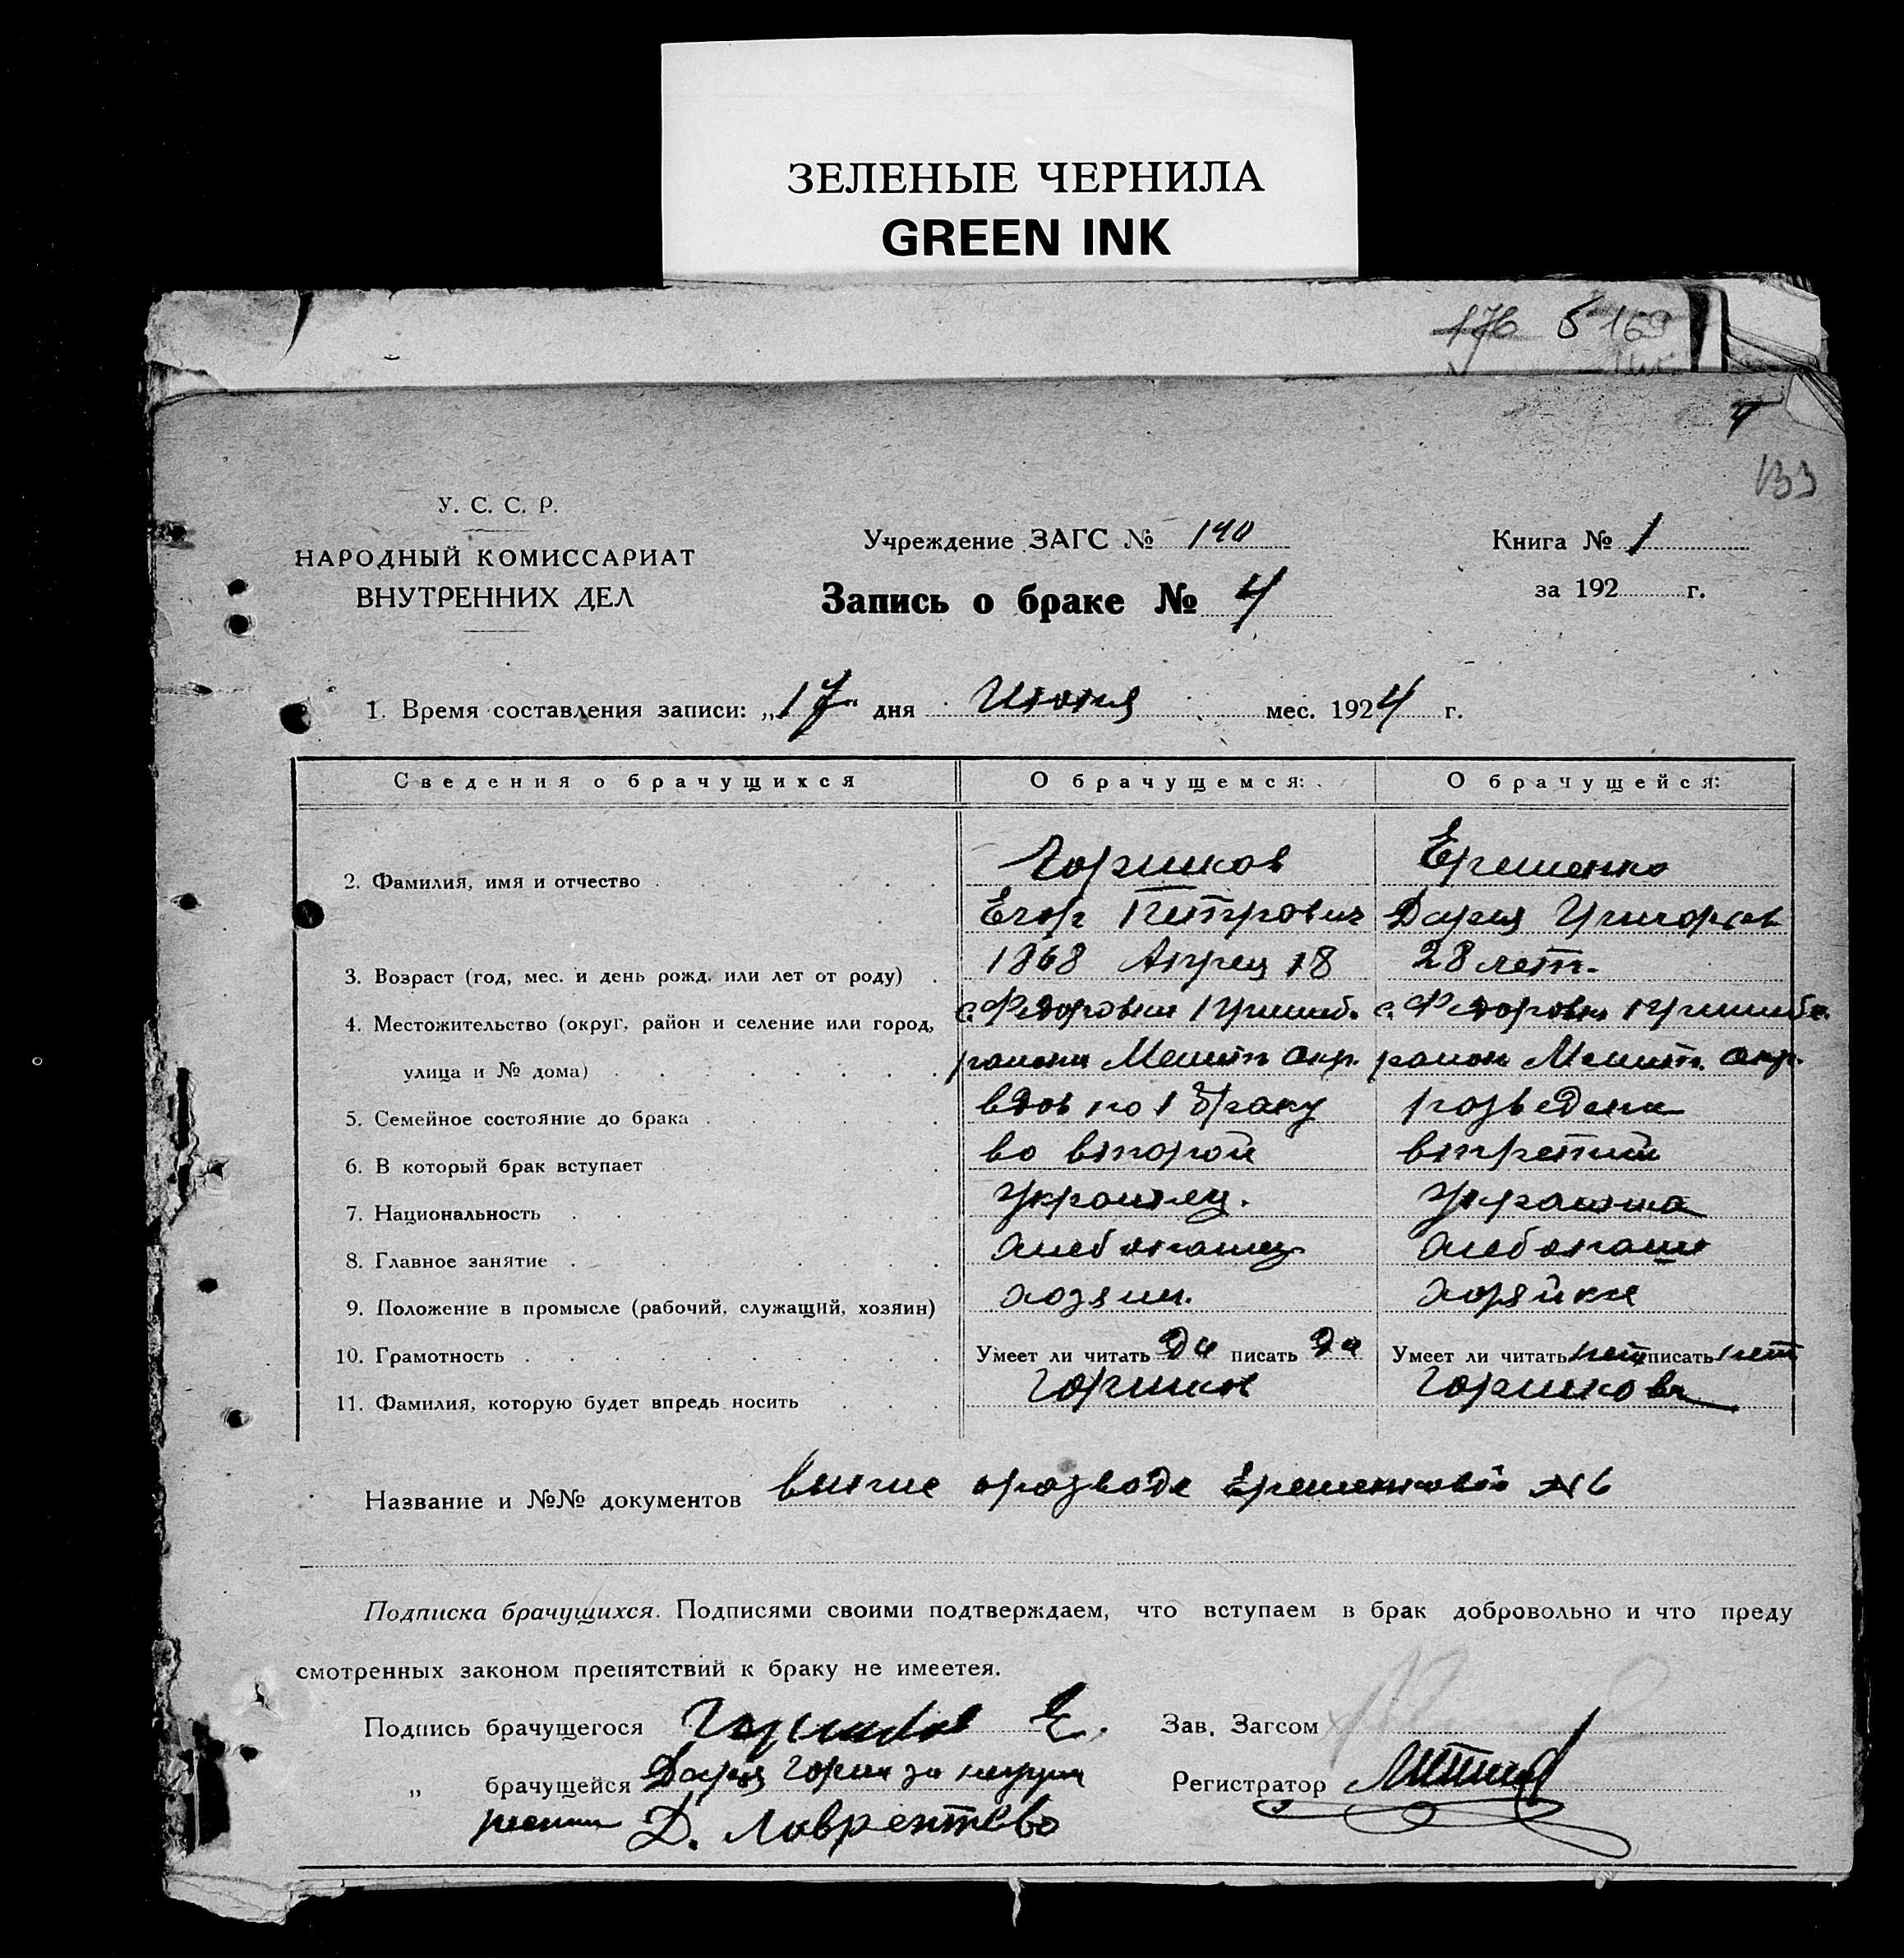 ЗЕЛЕНЫЕ ЧЕРНИЛА
GREEN INK
176 5 169
4
133
У. С. С. Р.
НАРОДНЫЙ КОМИССАРИАТ
ВНУТРЕННИХ ДЕЛ
Учреждение ЗАГС № 190
Запись о браке № 4
Книга № 1
за 192 г.
1. Время составления записи: „17“ дня Июня мес. 1924 г.
Сведения о брачущихся О брачущемся: О брачущейся:
2. Фамилия, имя и отчество Горшков Ерешенко
Егор Петрович Дария Григорьев
3. Возраст (год, мес. и день рожд. или лет от роду) 1868 Апрец 18 28 лет.
4. Местожительство (округ, район и селение или город, с. Федоровки с. Федоровки
улица и № дома) района Мелит. окр. район Мелит. окр.
5. Семейное состояние до брака вдов по 1 браку розведена
6. В который брак вступает во второй втретий
7. Национальность Украинец. Украинка
8. Главное занятие хлебопашец хлебопаш
9. Положение в промысле (рабочий, служащий, хозяин) хозяин. хозяйка
10. Грамотность Умеет ли читать Да писать Да Умеет ли читать нет писать нет
11. Фамилия, которую будет впредь носить Горшков Горшкова
Название и №№ документов розводе Ерешенковой № 6
Подписка брачущихся. Подписями своими подтверждаем, что вступаем в брак добровольно и что преду
смотренных законом препятствий к браку не имеетея.
Подпись брачущегося Горшков Е. Зав. Загсом
„ брачущейся Дария Горшк за негра Регистратор
Д. Лаврентево